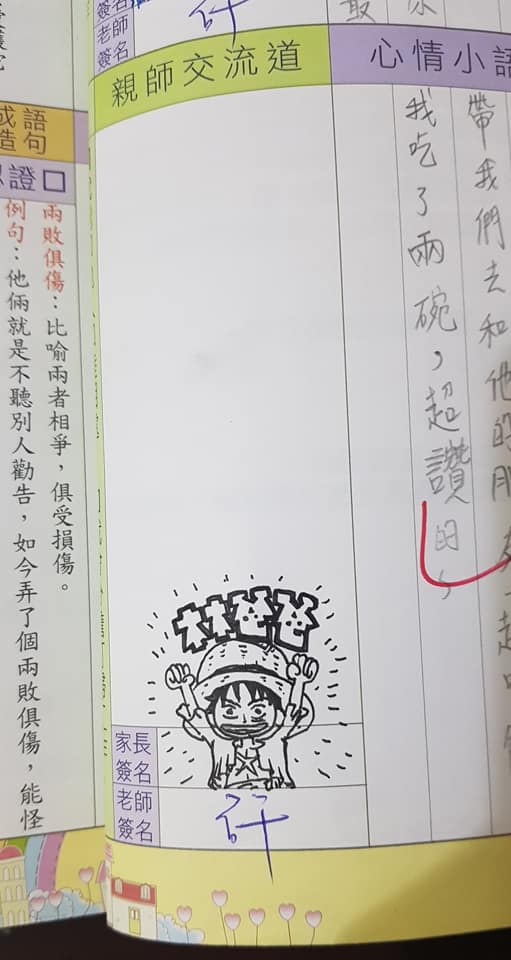 簽名
老師
簽名
许
心情小語
帶我們去和他的朋友一起吃
我吃了兩碗，超讚的，
親師交流道
家長
簽名
老師
簽名
许
成語
造句
證
兩敗俱傷：比喻兩者相爭，俱受損傷。
例句：他倆就是不聽別人勸告，如今弄了個兩敗俱傷，能怪